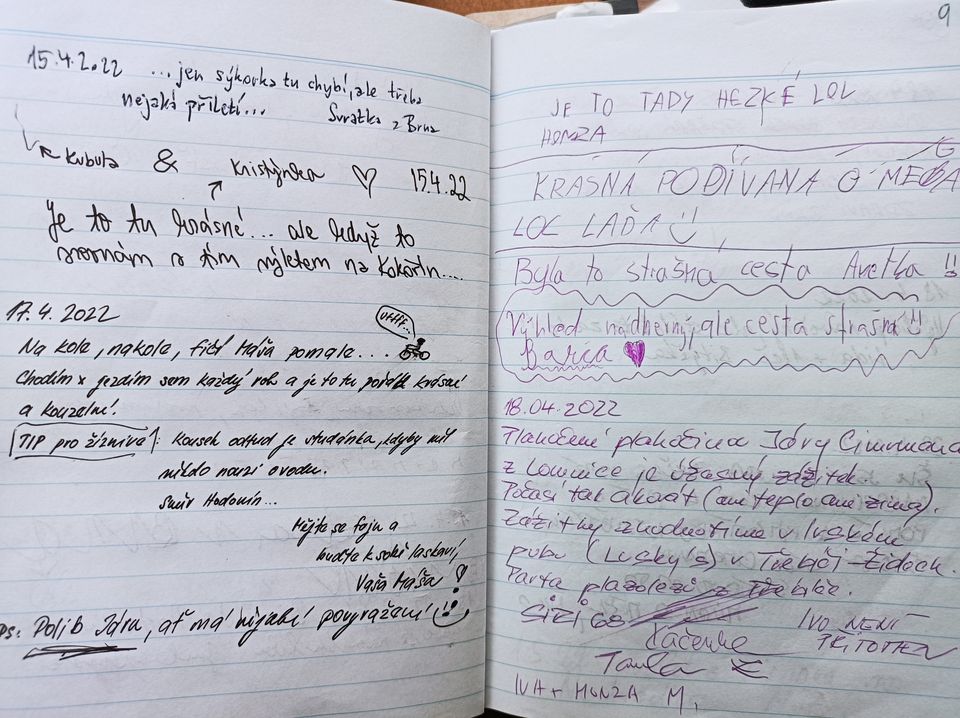 15.4.2022 ...jen sýkorka tu chybí, ale třeba
nejaká přiletí... Svratka z Brna
Kubula & Kristýnka ♡ 15.4.22
Je to tu krásné... ale když to
srovnám s tím výletem na Kokořín....
17.4.2022
UFFFF...
Na kole, na kole, fičí Máša pomale...
Chodím x jezdím sem každý rok a je to tu pořád krásné
a kouzelné.
TIP pro žíznivé: kousek odtud je studánka, kdyby měl
někdo nouzi o vodu.
Směr Hodonín...
Mějte se fajn a
buďte k sobě laskaví,
Vaša Máša
Ps: Polib Járu, ať má nějaké povyražení!
9
JE TO TADY HEZKÉ LOL
HONZA
KRÁSNÁ PODÍVANÁ O
LOL LAĎA
Byla to strašná cesta Anetka!!
Výhled nádherný, ale cesta strašná!!
Barča
18.04.2022
Járy Cimrmana
z Lomnice je úžasný zážitek.
Počasí tak akorát (ani teplo ani zima).
Zážitky zhodnotíme v Irském
pubu (Lusky's) v Třebíči-Židech.
Parta z Třebíče.
Káčenka
IVO NENÍ
PŘÍTOMEN
IVA + HONZA M.